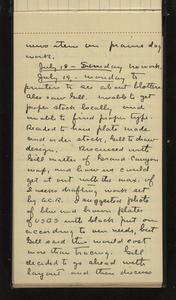 news item on praise day
work.
July 18 - Sunday no work.
July 19 - Monday to
printers to see about blotters
Also saw Gill. Unable to get
paper stock locally and
unable to find proper type.
Decided to have plate made
and order stock, Gill to draw
design. Discussed with
Gill matter of Grand Canyon
map, and how we could
get out with the map, of
Emery drafting work set
by A.C.R. I suggested photo
of blue and brown plates
of USGS with black put on
according to our needs, but
Gill said this would cost
more than tracing. Gill
decided to go ahead with
layout and then discuss